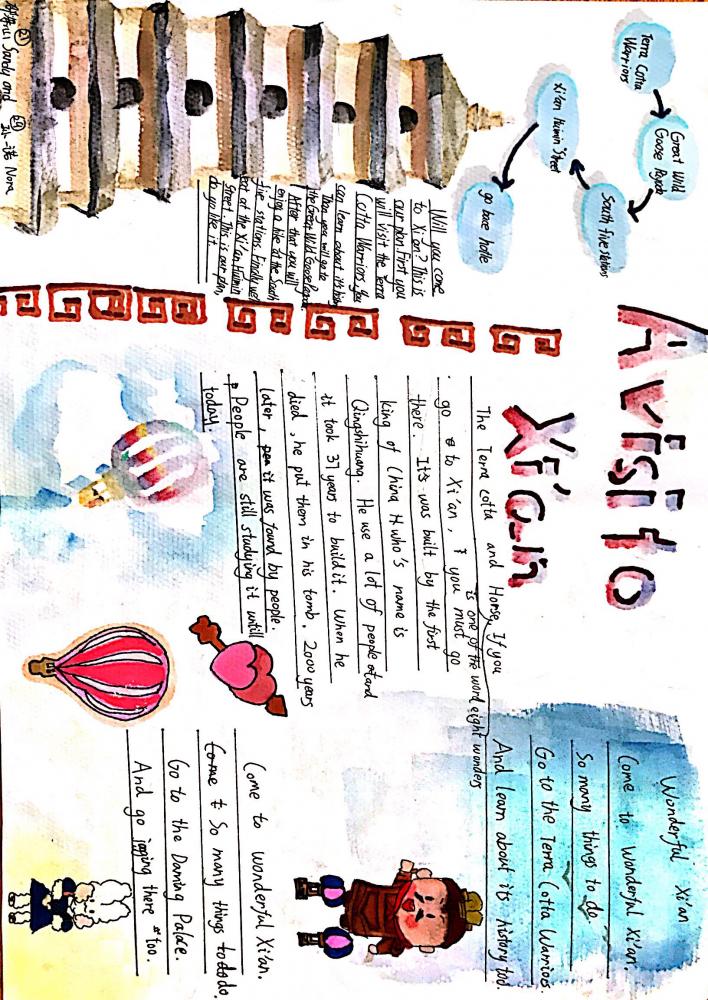 A visit to
Xi'an
Terra Cotta
Warriors
Great Wild
Goose Pagoda
South five stations
Xi'an Huimin Street
go bace hotle
Will you come
to Xi'an? This is
our plan. First you
will visit the Terra
Cotta Warriors. You
can learn about its his
Then you will go to
the Great Wild Goose Pagoda.
After that you will
enjoy a hike at the South
five stations. Finally we'll
eat at the Xi'an Huimin
Street. This is our plan,
do yo like it.
Sandy and Nora
The Terra cotta and Horse, If you
is one of the word eight wonders
go to Xi'an, you must go
there. It's was built by the first
king of China who's name is
Qingshihuang. He use a lot of people and
it took 37 years to build it. When he
died, he put them in his tomb. 2000 years
later, it was found by people.
People are still studying it untill
today.
Wonderful Xi'an
Come to Wonderful Xi'an.
So many things to do.
Go to the Terra Cotta Warriors.
And learn about its history too.
Come to wonderful Xi'an.
So many things to do.
Go to the Daming Palace.
And go jogging there too.